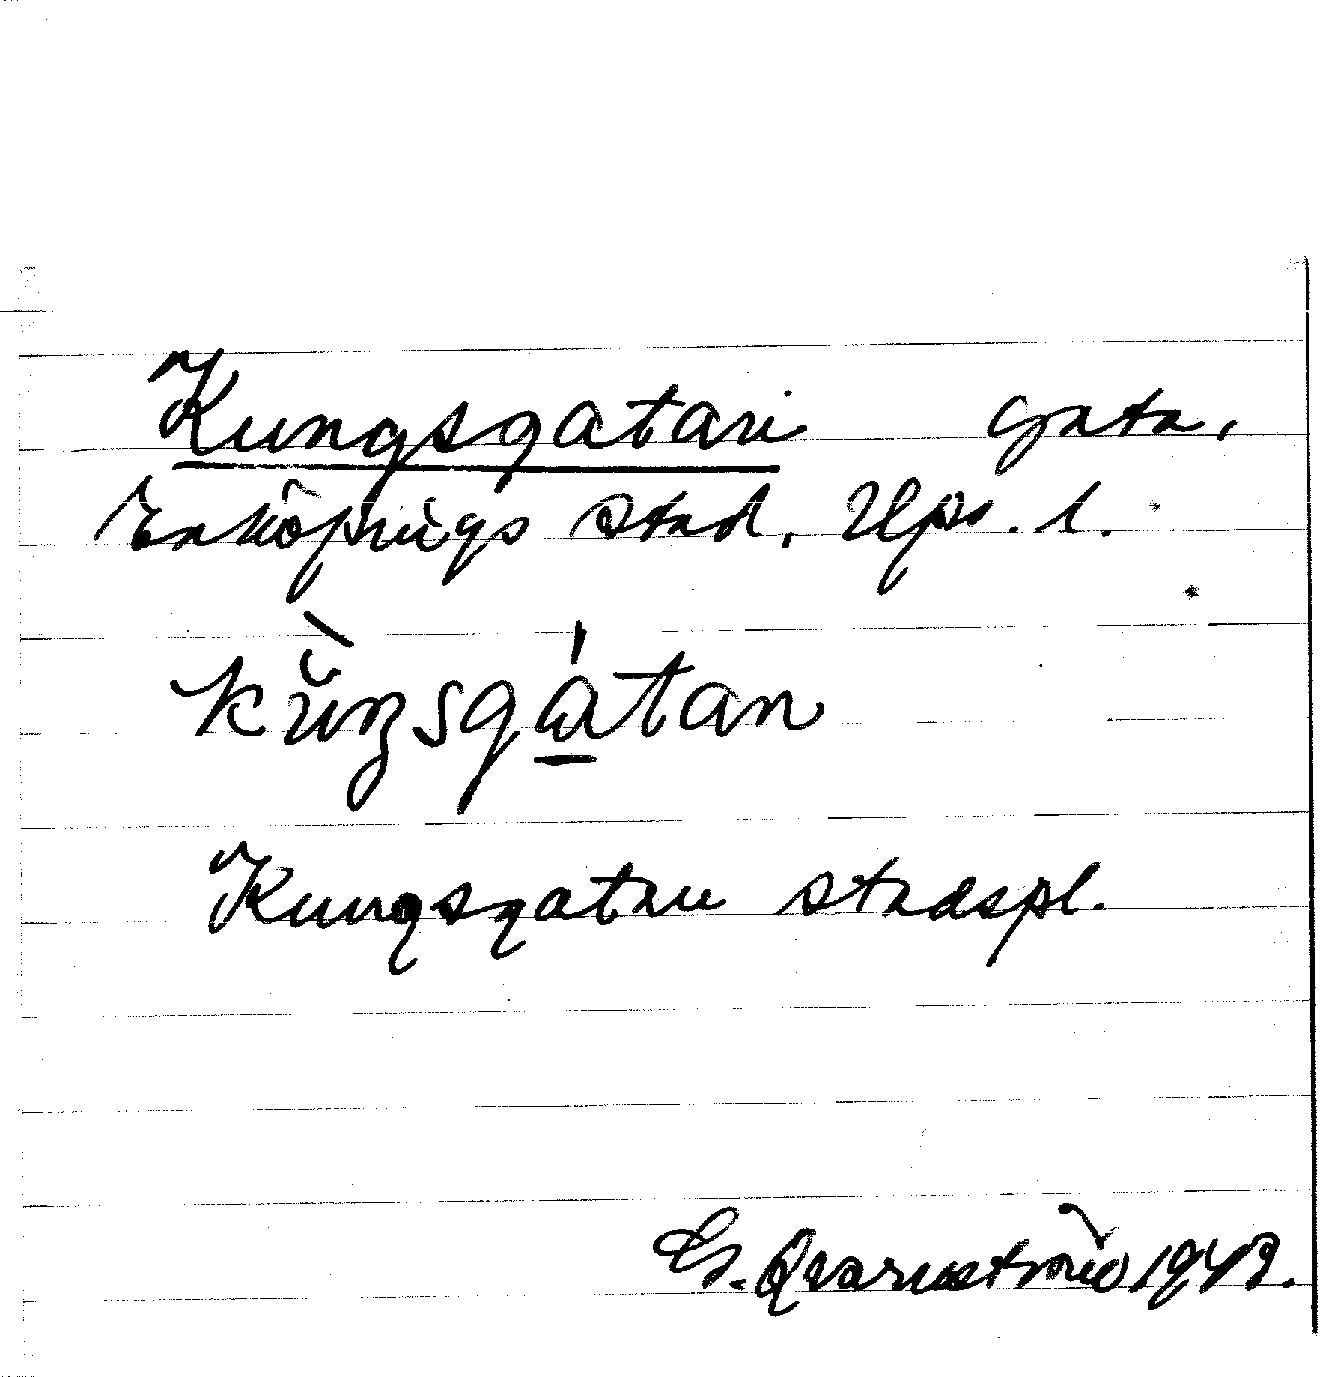 Kungsgatan gata,
Enköpings stad, Ups. l.
kùŋsgátan
Kungsgatan stadspl.
G. Qvarnström 1943.